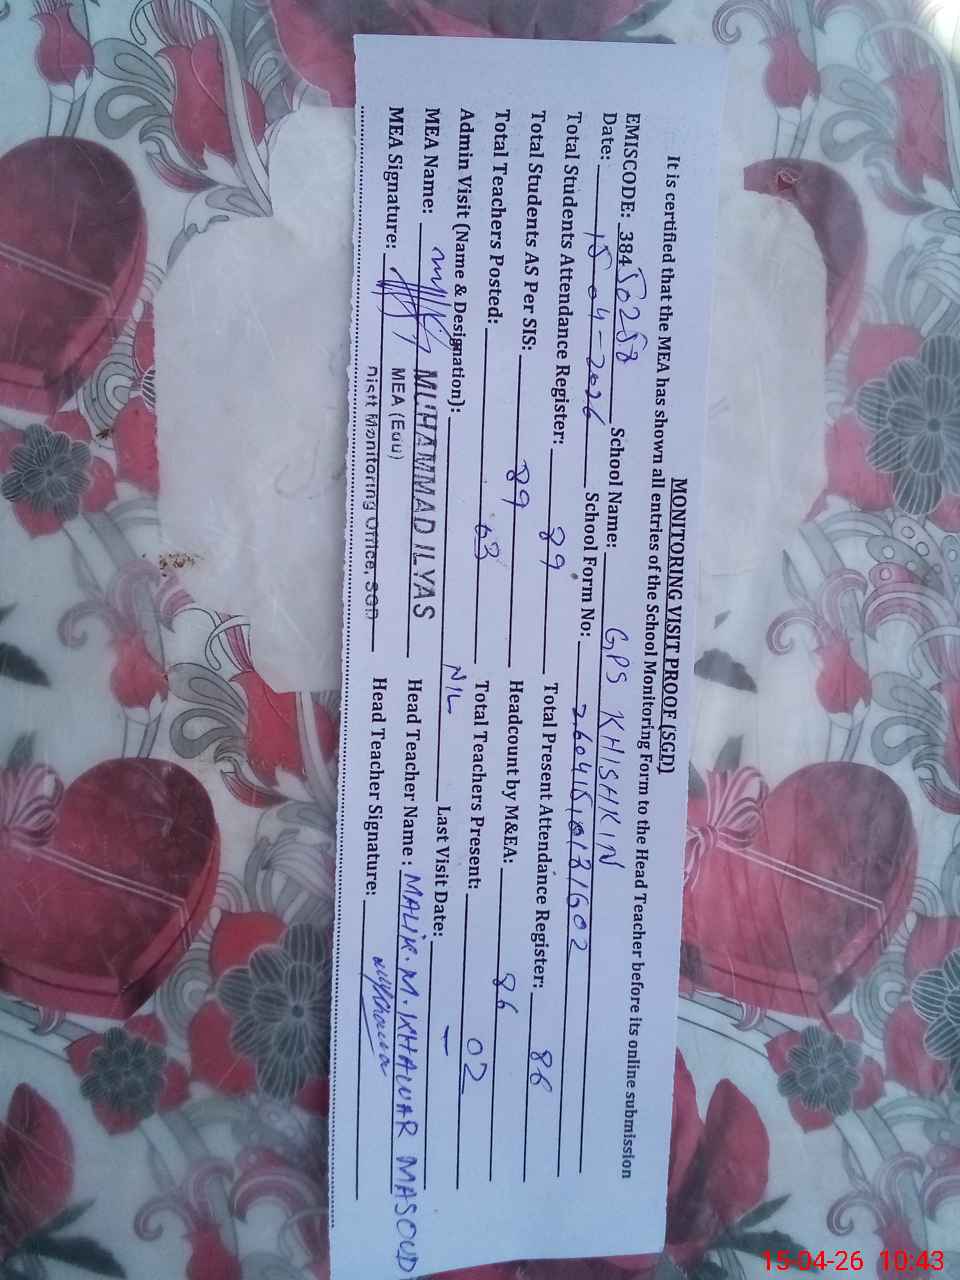 MONITORING VISIT PROOF (SGD)
It is certified that the MEA has shown all entries of the School Monitoring Form to the Head Teacher before its online submission
EMISCODE: 38450258 School Name: GPS KHISHKIN
Date: 15-04-2026 School Form No: 26041510131602
Total Students Attendance Register: 89 Total Present Attendance Register: 86
Total Students AS Per SIS: 89 Headcount by M&EA: 86
Total Teachers Posted: 03 Total Teachers Present: 02
Admin Visit (Name & Designation): NIL Last Visit Date: —
MEA Name: MUHAMMAD ILYAS Head Teacher Name: MALIK. M. KHAWAR MASOUD
MEA Signature: MEA (Edu) Head Teacher Signature:
Distt Monitoring Office, SGD
15-04-26 10:43